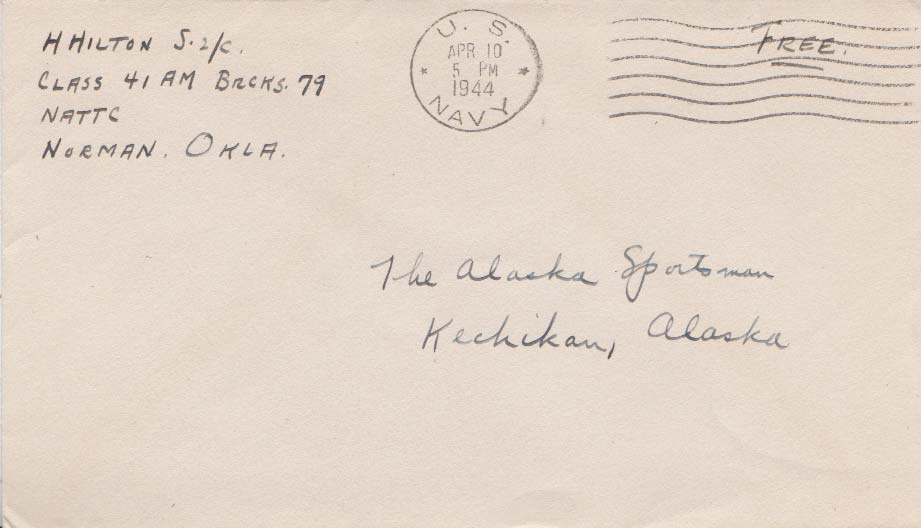 H HILTON S. 2/C.
CLASS 41 AM BRCKS. 79
NATTC
NORMAN. OKLA.
U. S.
APR 10
5 PM
1944
NAVY
FREE.
The Alaska Sportsman
Kechikan, Alaska